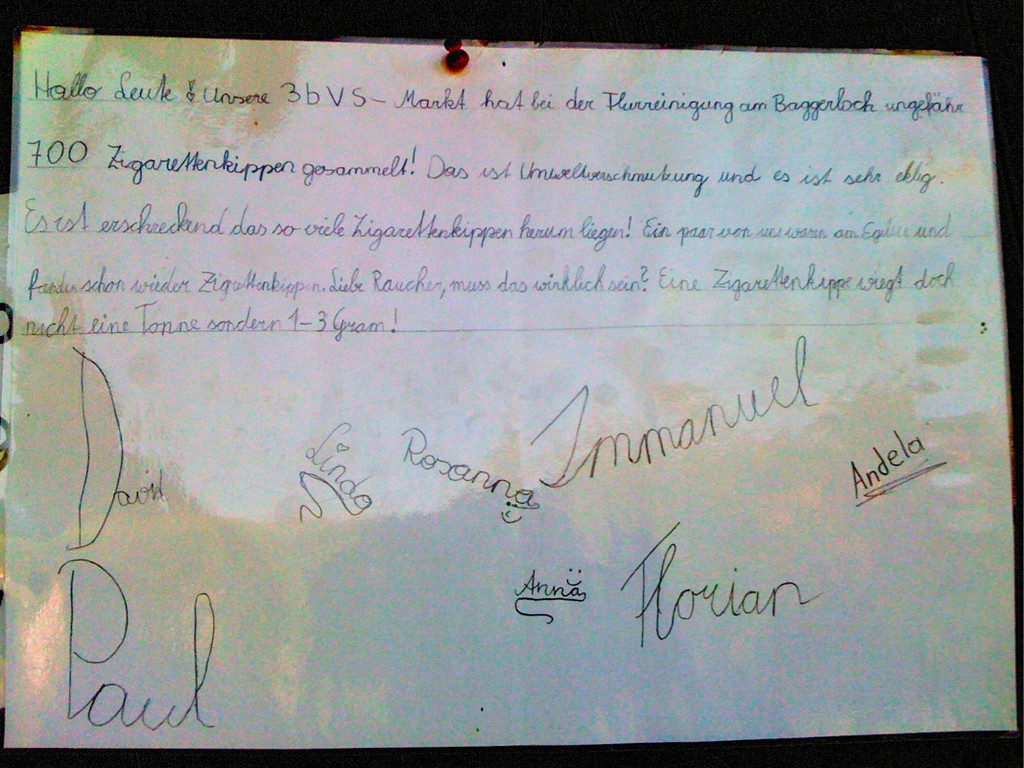 Hallo Leute! Unsere 3b VS - Markt hat bei der Flurreinigung am Baggerloch ungefähr
700 Zigarettenkippen gesammelt! Das ist Umweltverschmutzung und es ist sehr eklig.
Es ist erschreckend das so viele Zigarettenkippen herum liegen! Ein paar von uns waren am und
fanden schon wieder Zigarettenkippen. Liebe Raucher, muss das wirklich sein? Eine Zigarettenkippe wiegt doch
nicht eine Tonne sondern 1-3 Gram!
David
Linda
Rosanna
Immanuel
Andela
Paul
Anna
Florian